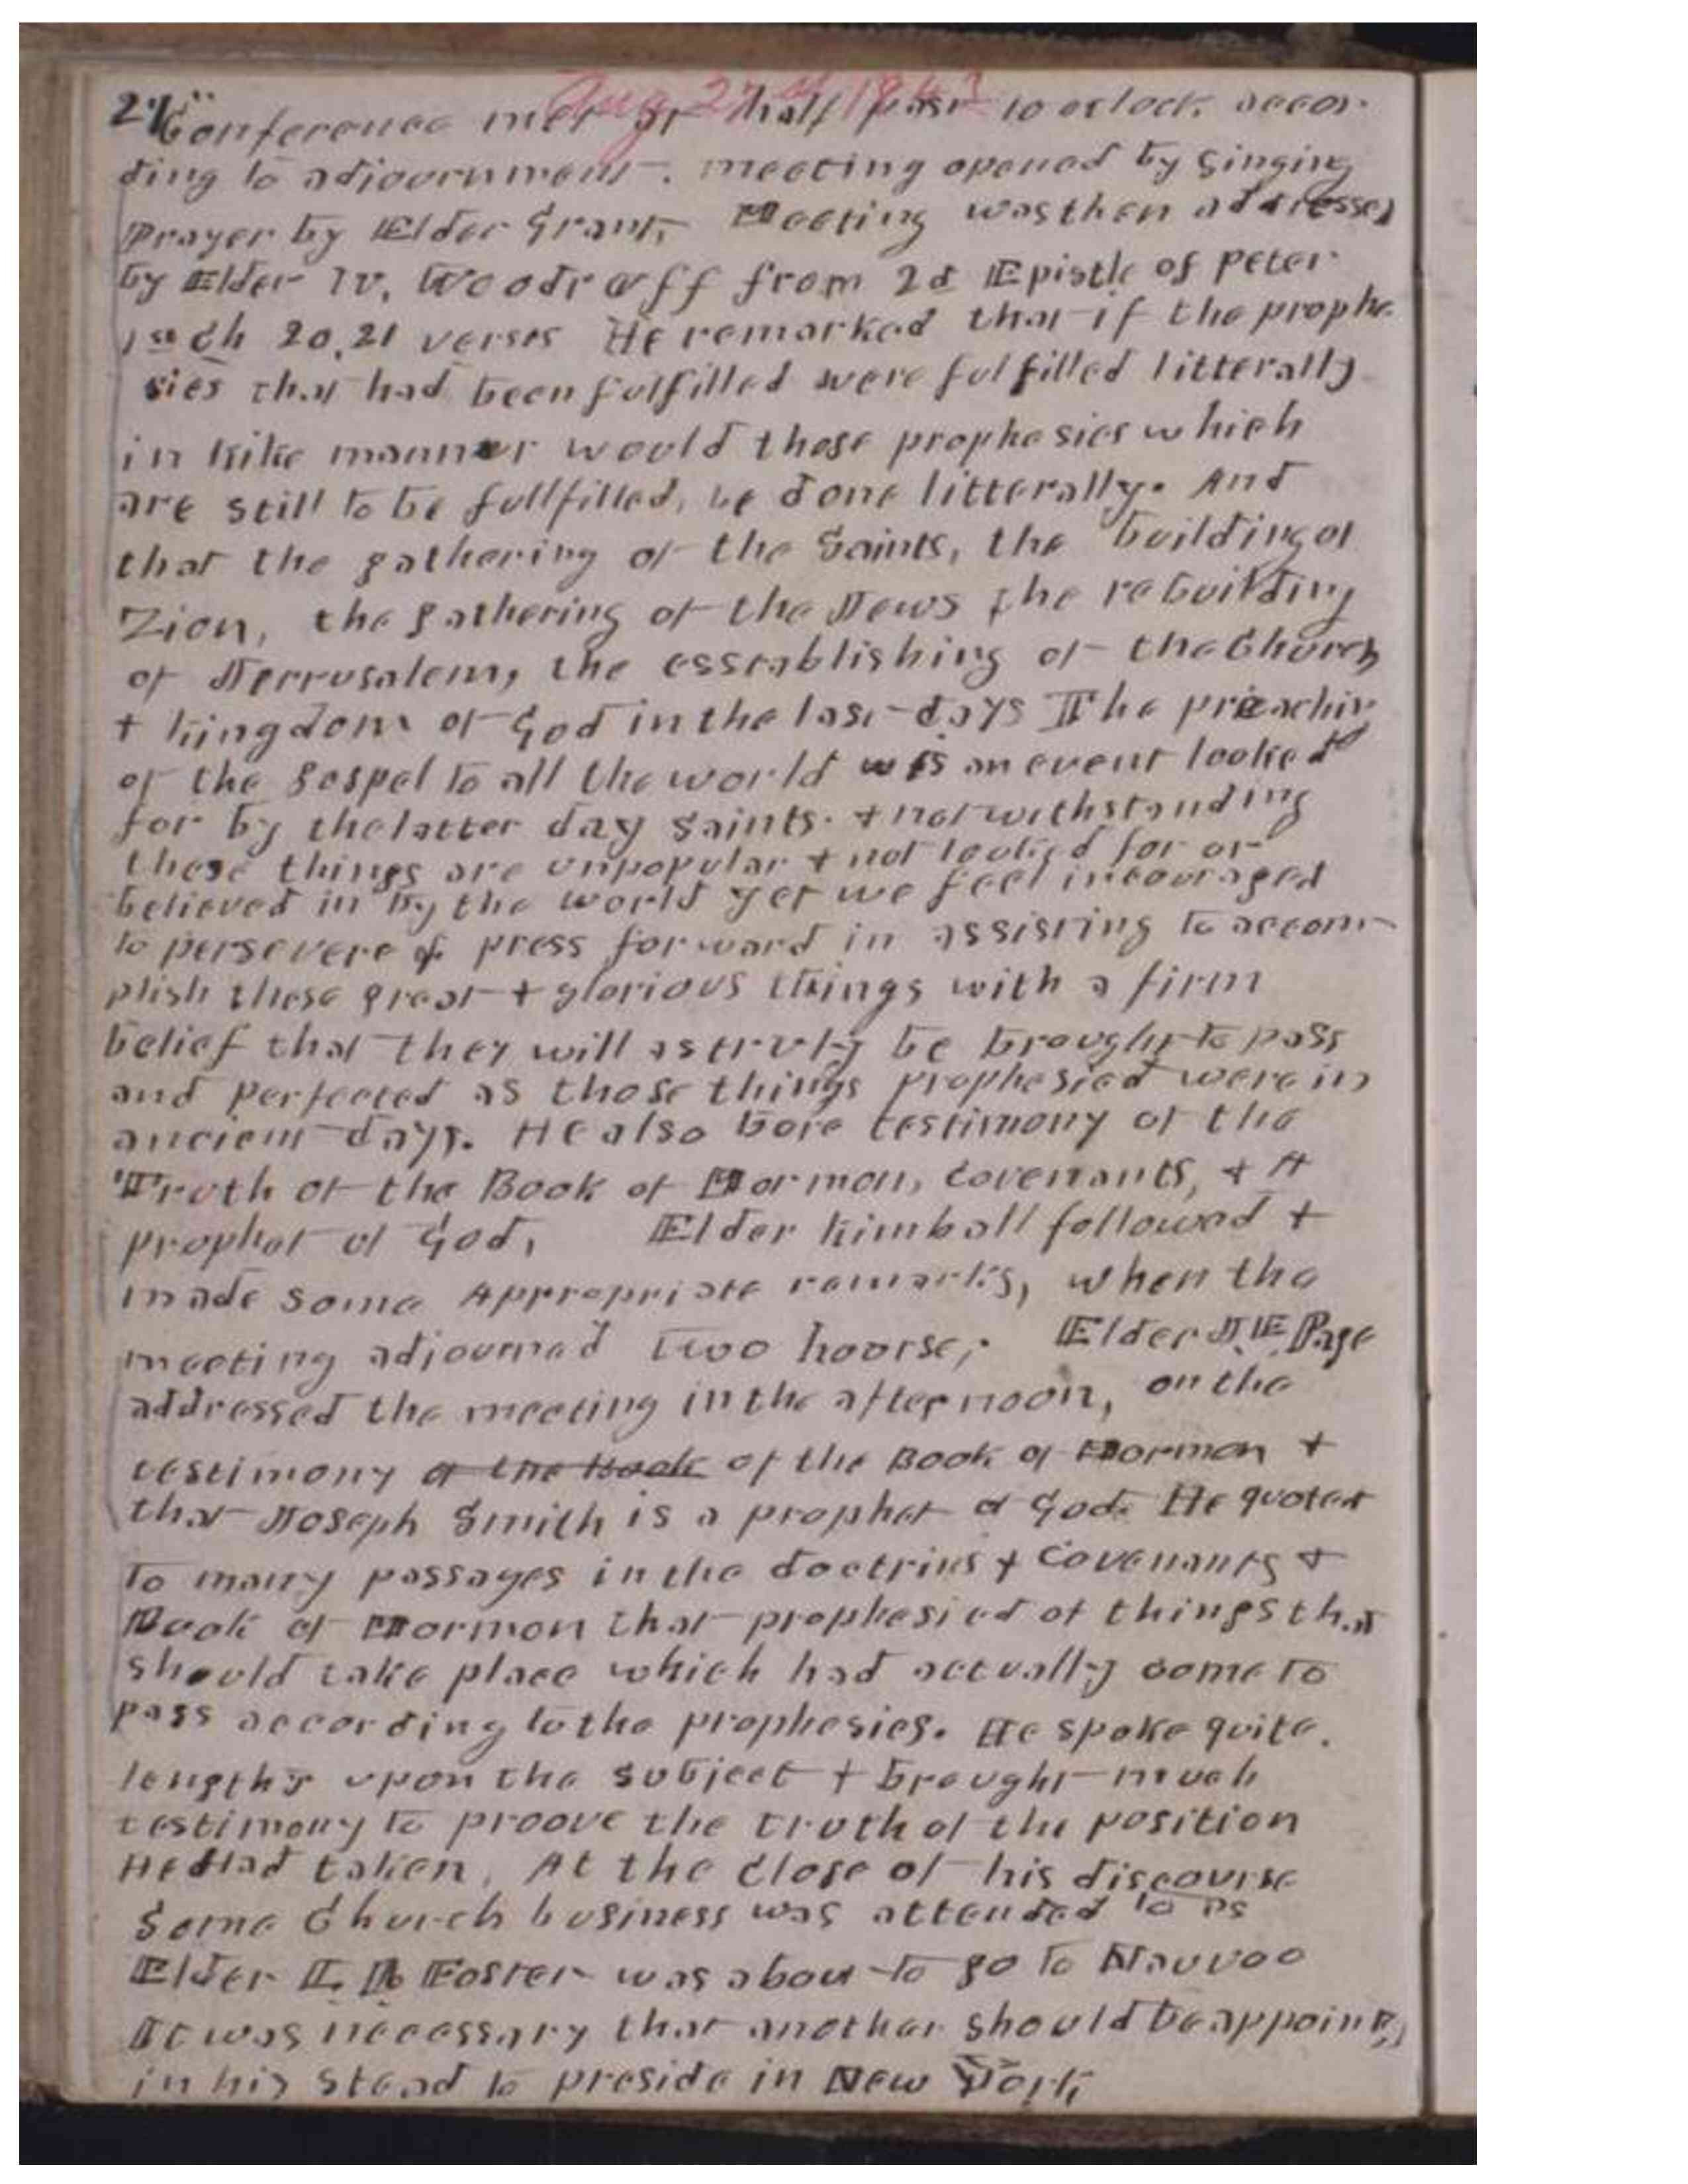 Aug 27th 1843
27" Conference met at half past 10 oclock. accor-
ding to adjournment. meeting opened by Singing
Prayer by Elder Grant, Meeting was then addressed
by Elder W. Woodruff from 2d Epistle of Peter
1st ch 20,21 verses He remarked that if the prophe
sies that had been fulfilled were fulfilled litterally
in like manner would those prophesies which
are still to be fullfilled, be done litterally. And
that the gathering of the Saints, the building of
Zion, the gathering of the Jews the rebuilding
of Jerrusalem, the esstablishing of the Church
+ kingdom of God in the last days The preaching
of the gospel to all the world was an event looked
for by the latter day Saints. + notwithstanding
these things are unpopular + not looked for or
believed in by the world yet we feel incouraged
to persevere & press forward in assisting to accom-
plish these great + glorious things with a firm
belief that they will as truly be brought to pass
and perfected as those things prophesied were in
ancient days. He also bore testimony of the
Truth of the Book of Mormon, Covenants, + A
prophet of God, Elder Kimball followed +
made some Appropriate remarks, when the
meeting adjourned two hoorse,. Elder J. E. Page
addressed the meeting in the afternoon, on the
testimony of the Book of the Book of Mormon +
that Joseph Smith is a prophet of God. He quoted
to many passages in the doctrins + Covenants +
Book of Mormon that prophesied of things that
should take place which had actually come to
pass according to the prophesies. He spoke quite.
lengthy upon the subject + brought much
testimony to proove the truth of the position
He Had taken. At the Close of his discourse
Some Church business was attended to as
Elder L. R. Foster was about to go to Nauvoo
It was necessary that another should be appointed
in his stead to preside in New York